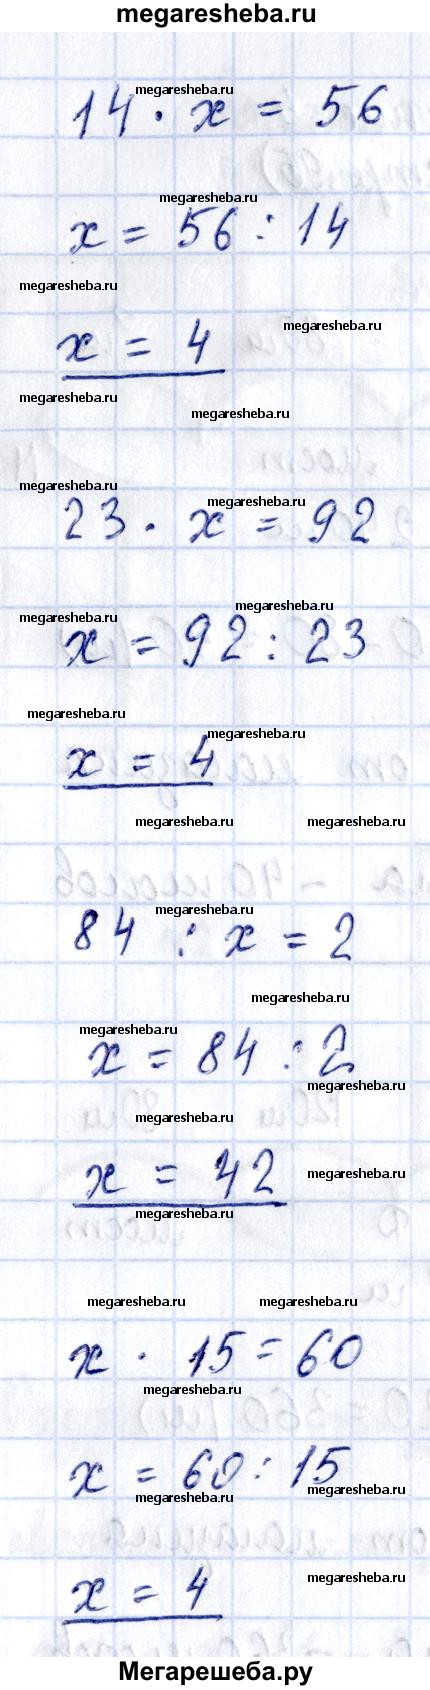 megaresheba.ru
megaresheba.ru
14 · x = 56
megaresheba.ru
x = 56 : 14
megaresheba.ru
megaresheba.ru
x = 4
megaresheba.ru
megaresheba.ru
megaresheba.ru
megaresheba.ru
23 · x = 92
megaresheba.ru
megaresheba.ru
x = 92 : 23
megaresheba.ru
megaresheba.ru
x = 4
megaresheba.ru
megaresheba.ru
megaresheba.ru
84 : x = 2
megaresheba.ru
megaresheba.ru
x = 84 : 2
megaresheba.ru
megaresheba.ru
megaresheba.ru
x = 42
megaresheba.ru
megaresheba.ru
megaresheba.ru
x · 15 = 60
megaresheba.ru
x = 60 : 15
megaresheba.ru
megaresheba.ru
megaresheba.ru
x = 4
Мегарешеба.ру